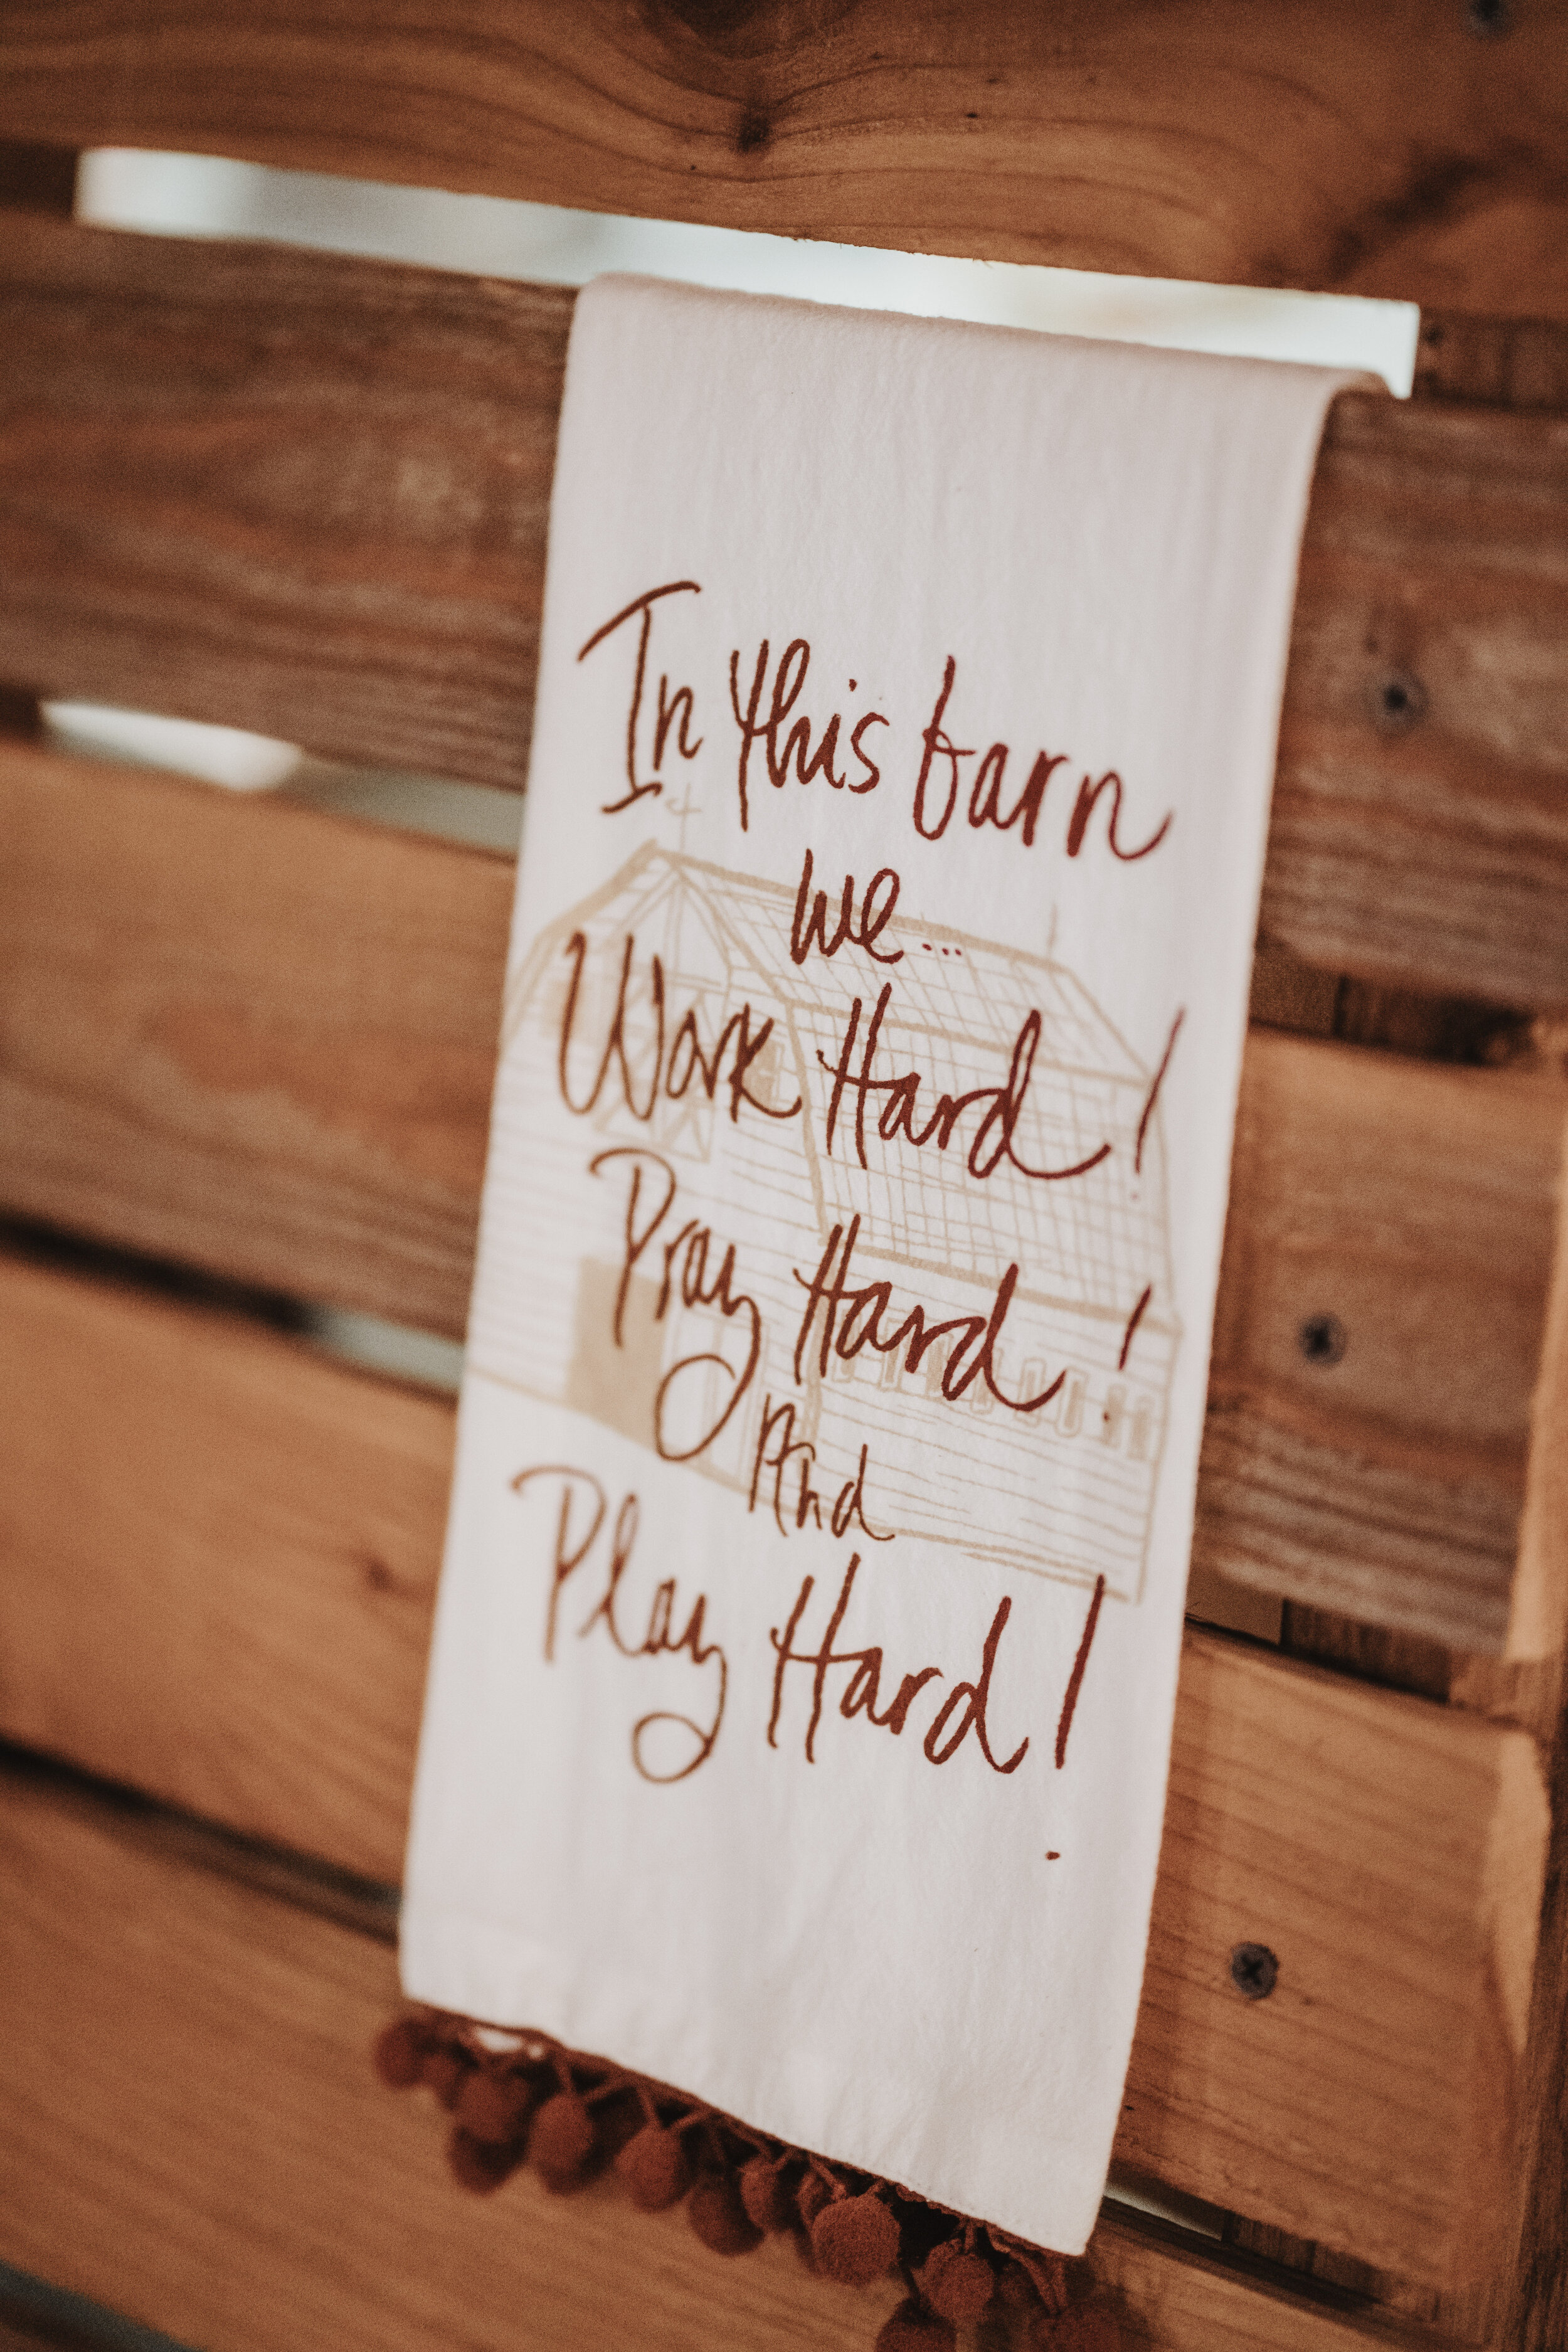 In this barn
we...
Work Hard!
Pray Hard!
And
Play Hard!